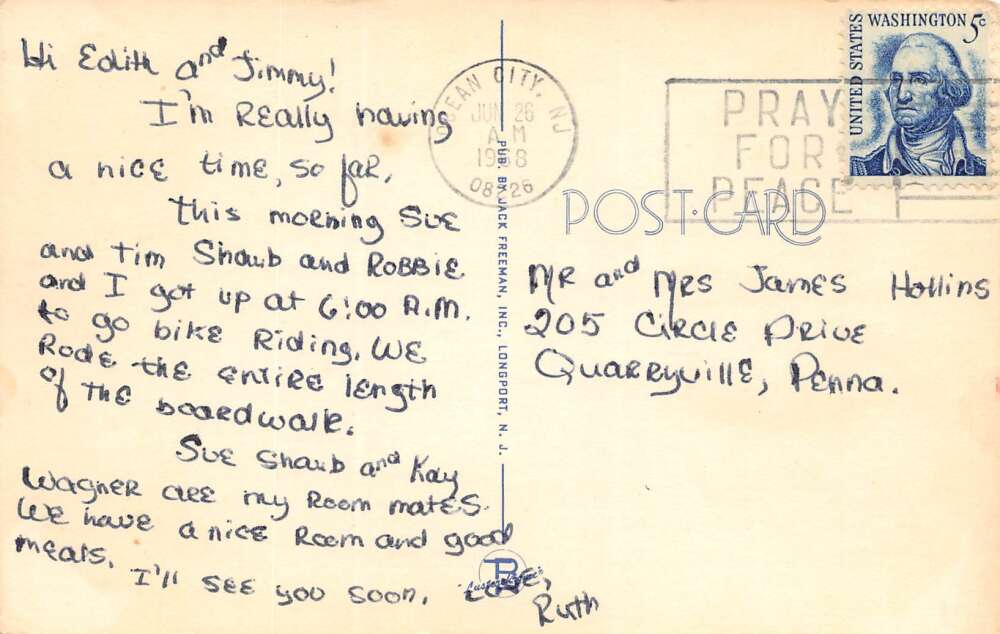 Hi Edith and Jimmy!
I'm Really having
a nice time, so far.
This morning Sue
and Tim Shaub and Robbie
and I got up at 6:00 A.M.
to go bike Riding. We
Rode the entire length
of the boardwalk.
Sue Shaub and Kay
Wagner are my Room mates.
We have a nice Room and good
meals.
I'll see you soon.
Love,
Ruth
PUB. BY JACK FREEMAN, INC., LONGPORT, N. J.
OCEAN CITY, NJ
JUN 26
AM
1968
08226
PRAY
FOR
PEACE
UNITED STATES
WASHINGTON 5c
POST·CARD
Mr and Mrs James Hollins
205 Circle Drive
Quarryville, Penna.